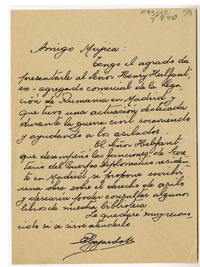 Amigo Mujica:
Tengo el agrado de
presentarle al Señor Henry Helfant,
ex-agregado comercial de la Lega-
ción de Rumania en Madrid,
que tuvo una actuación destacada
durante la guerra civil socorriendo
y ayudando a los asilados.
El Señor Helfant
que desempeñó las funciones de Secre-
tario del Cuerpo Diplomático residen-
te en Madrid, se propone escribir
una obra sobre el derecho de asilo
y desearía poder consultar algunos
libros de nuestra biblioteca.
Le quedaré muy recono-
cido si se sirve atenderlo.